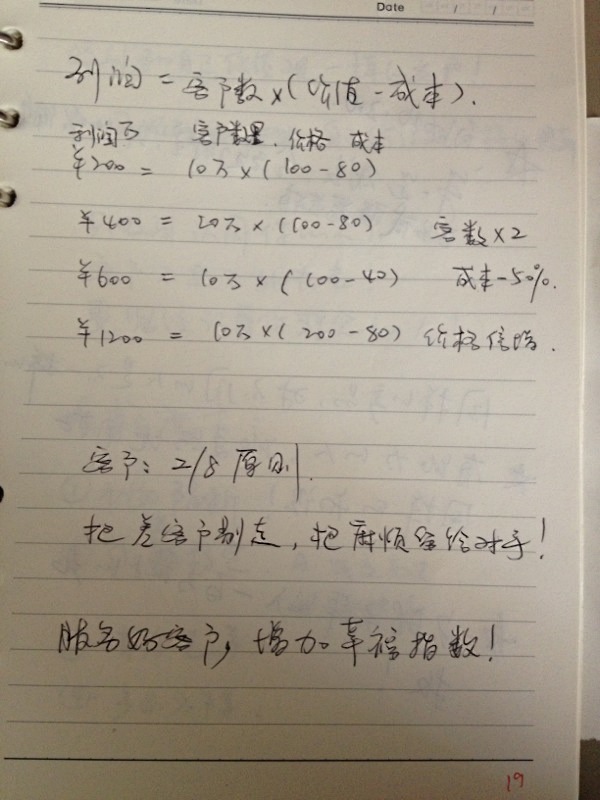 Date
利润 = 客户数×(价值-成本).
利润万 客户数量. 价格 成本
¥200 = 10万×(100-80)
¥400 = 20万×(100-80) 客数×2
¥600 = 10万×(100-40) 成本-50%.
¥1200 = 10万×(200-80) 价格倍增.
客户: 2/8原则.
把差客户剔走, 把麻烦留给对手!
服务好客户, 增加幸福指数!
19